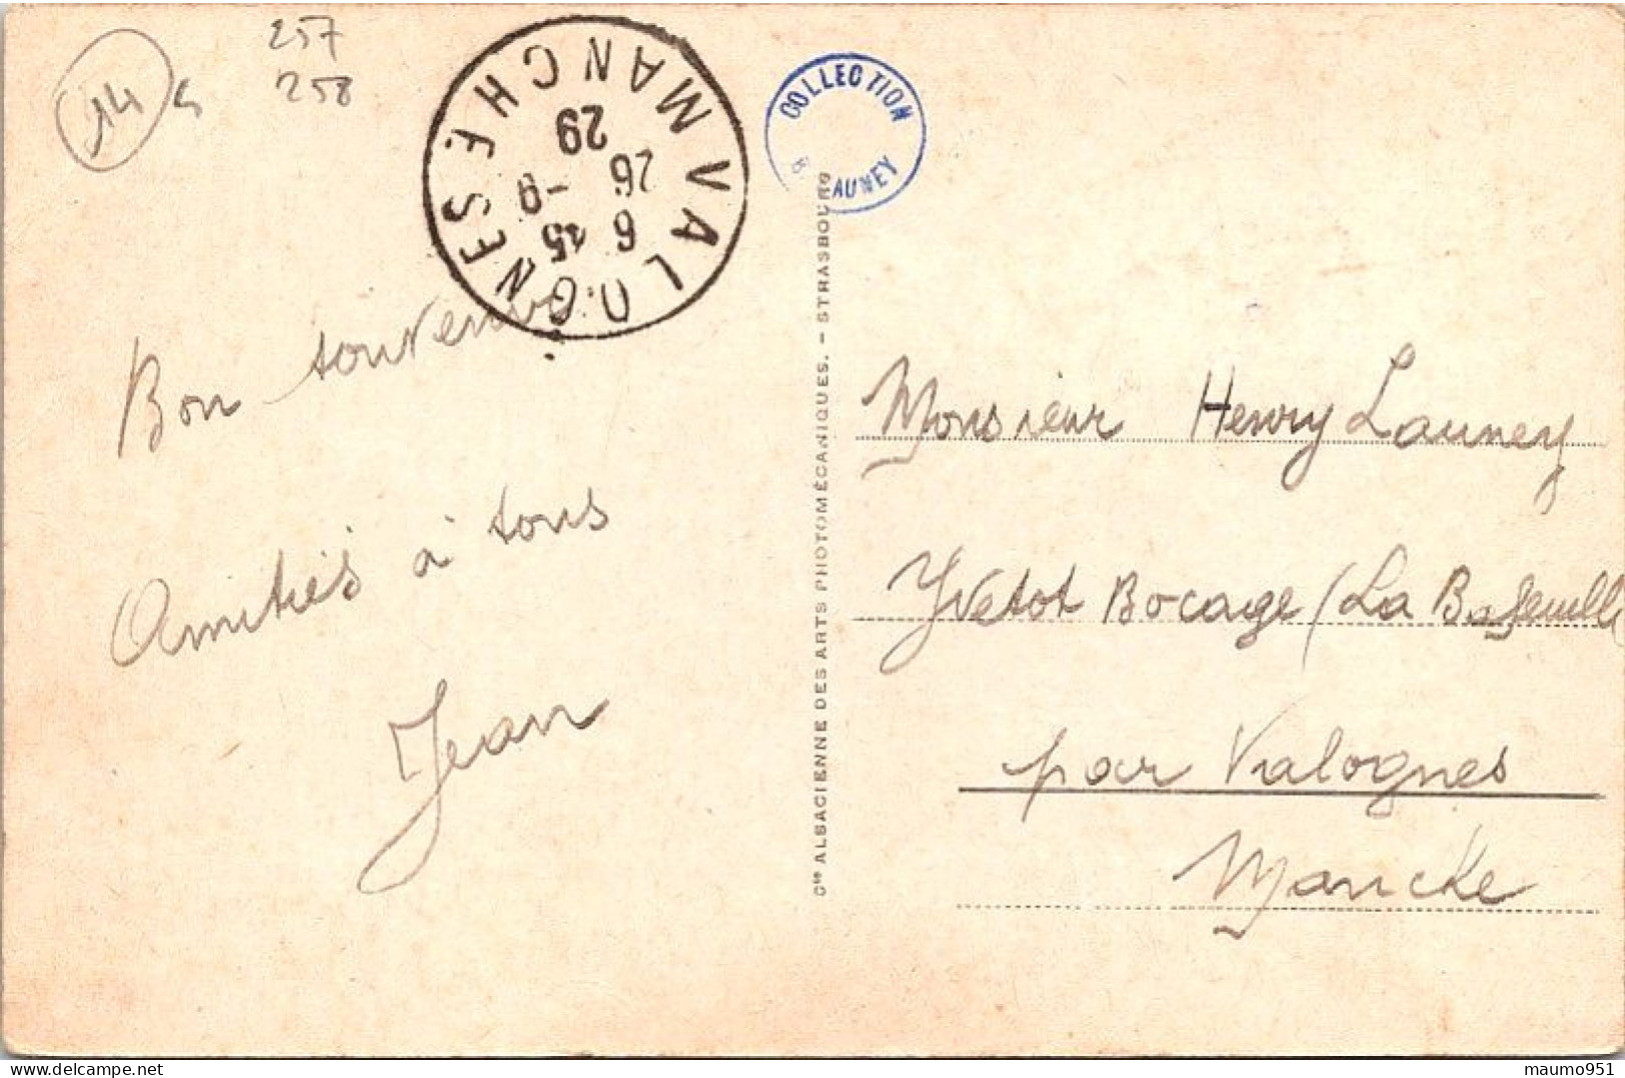 257
14
258
VALOGNES
MANCHE
6 45
26 -9
29
COLLECTION
AUNEY
Bon souvenir
Amitiés à tous
Jean
Cie ALSACIENNE DES ARTS PHOTOMÉCANIQUES. – STRASBOURG
Monsieur Henry Launey
Yvetot Bocage (La
par Valognes
Manche
delcampe.net
maumo951